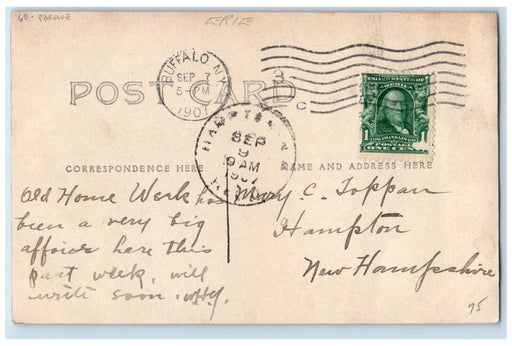 60-PARADE
ERIE
BUFFALO, N.Y.
SEP 7
5-PM
1907
3
C
POST CARD
HAMPTON, N.H.
SEP
9
9 AM
1907
CORRESPONDENCE HERE
NAME AND ADDRESS HERE
Old Home Week has
been a very big
affair here this
past week. will
write soon.
Mary C. Toppan
Hampton
New Hampshire
75